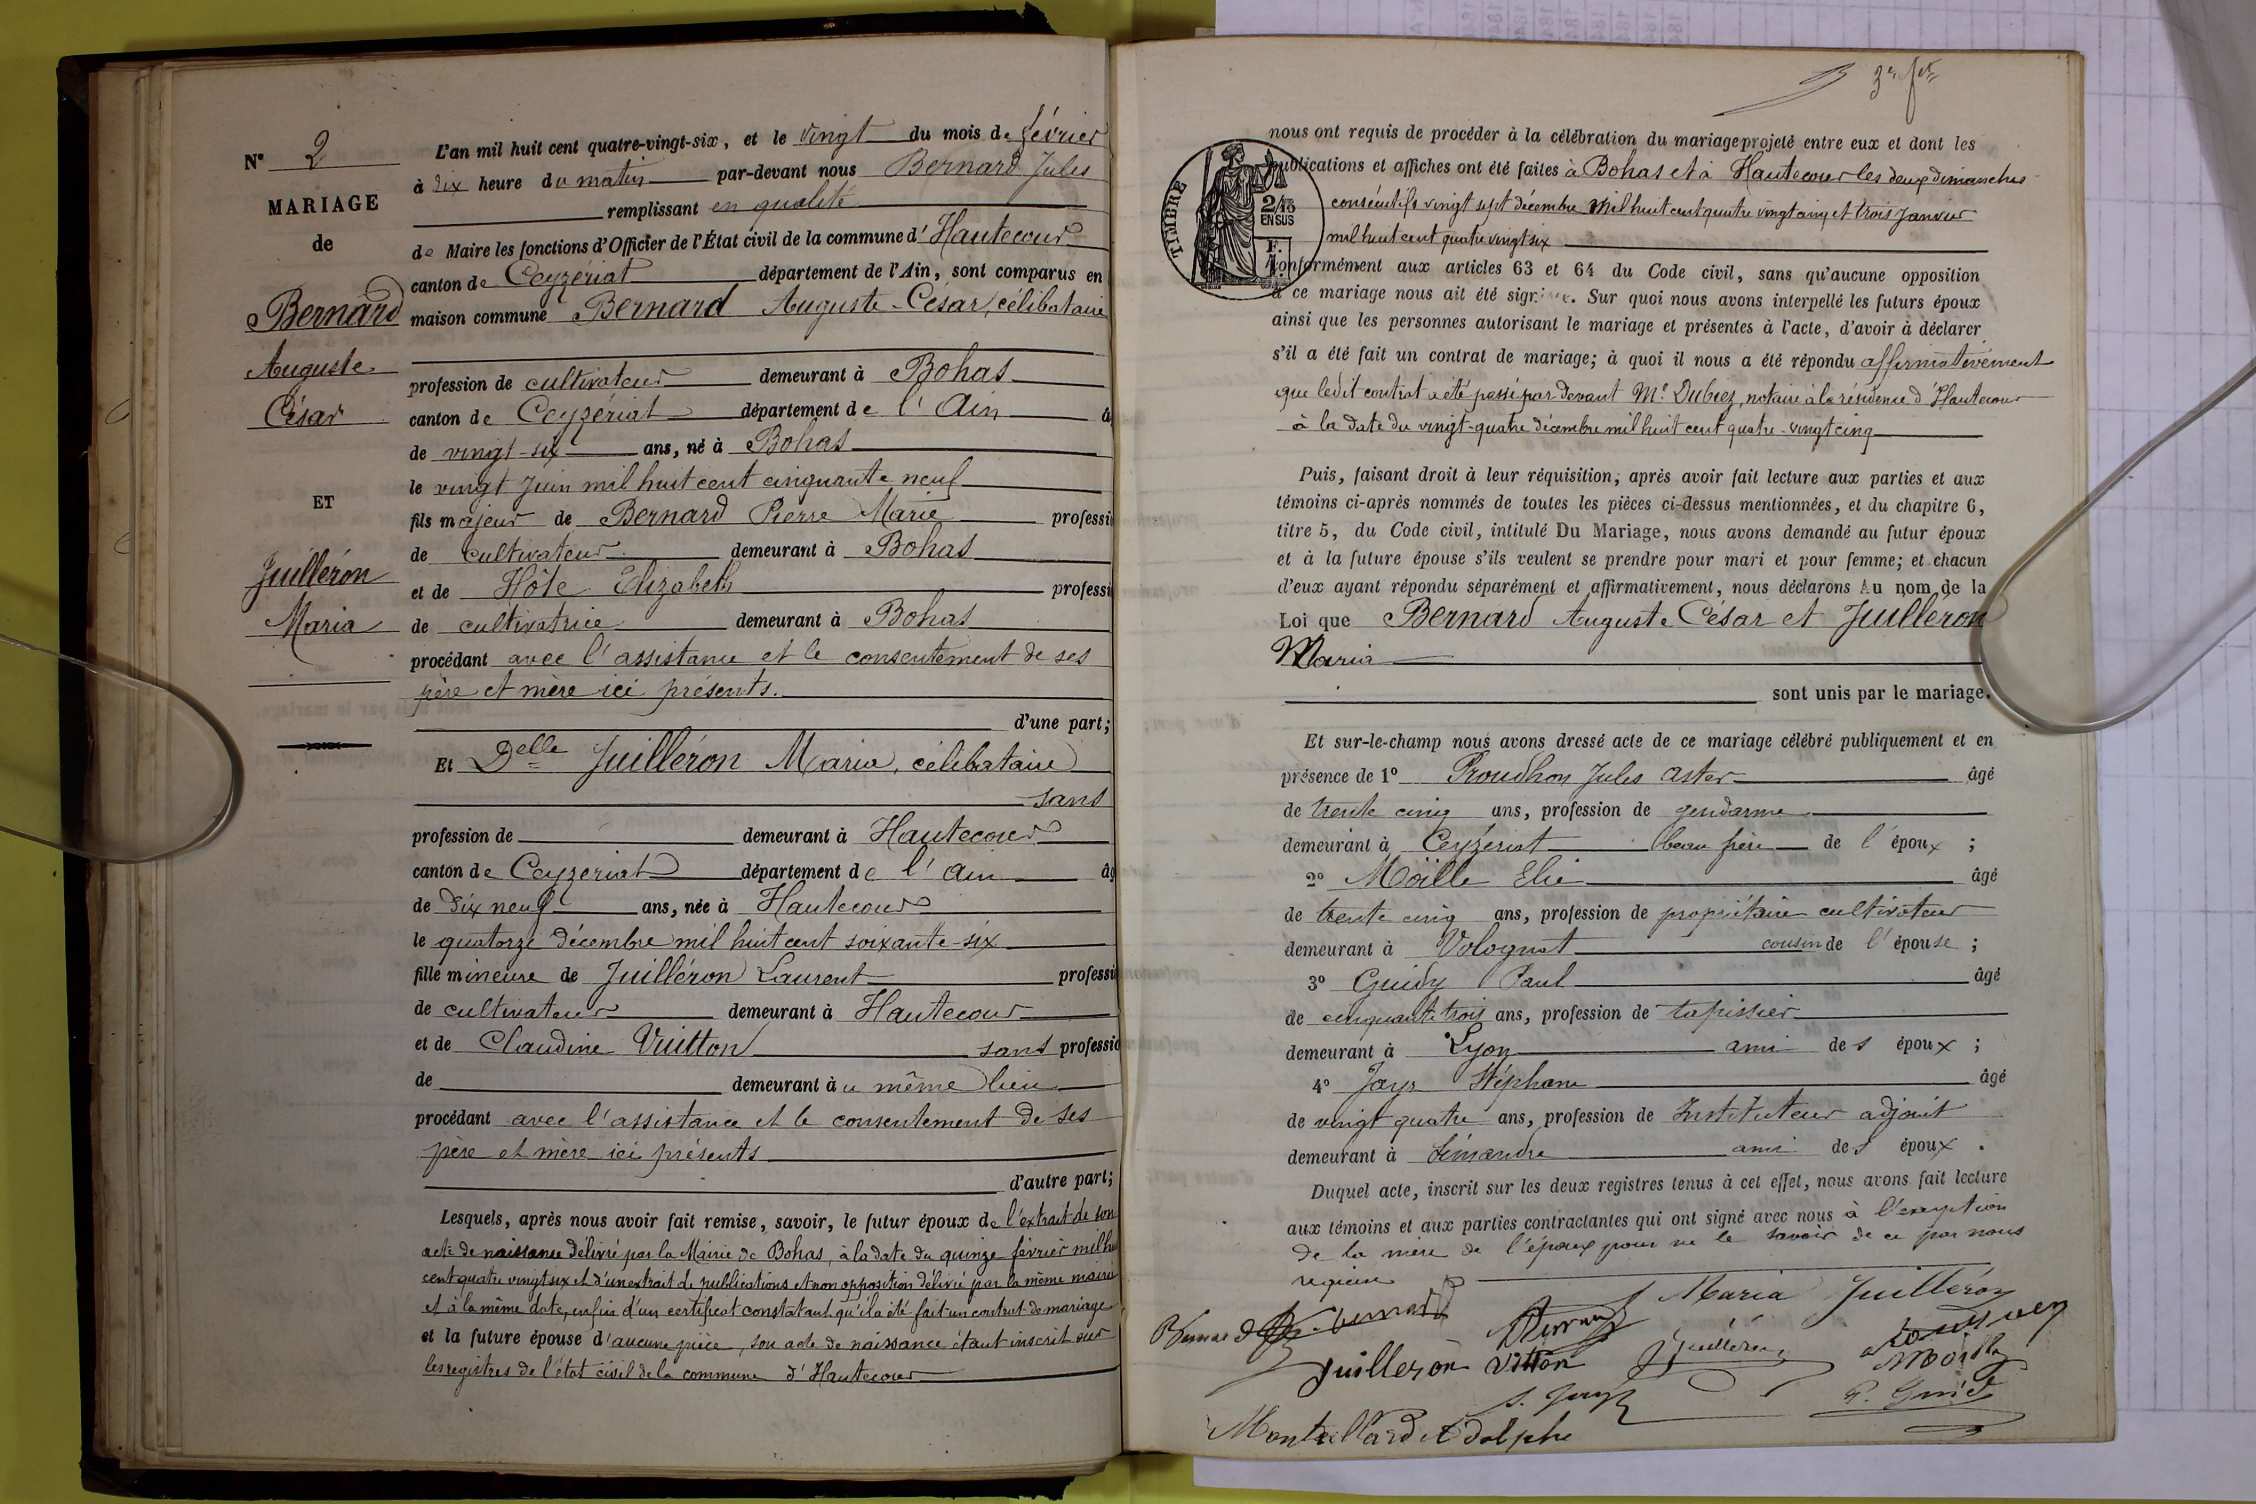 N° 2
MARIAGE
de
Bernard
Auguste
César
ET
Juilléron
Maria
L'an mil huit cent quatre-vingt-six, et le vingt du mois de février
à dix heure du matin par-devant nous Bernard Jules
remplissant en qualité
de Maire les fonctions d'Officier de l'État civil de la commune d'Hautecour
canton de Ceyzériat département de l'Ain, sont comparus en
maison commune Bernard Auguste-César, célibataire
profession de cultivateur demeurant à Bohas
canton de Ceyzériat département de l'Ain â
de vingt-six ans, né à Bohas
le vingt Juin mil huit cent cinquante neuf
fils majeur de Bernard Pierre Marie professi
de cultivateur demeurant à Bohas
et de Hôte Elizabeth professi
de cultivatrice demeurant à Bohas
procédant avec l'assistance et le consentement de ses
père et mère ici présents.
d'une part;
Et Delle Juilléron Maria, célibataire
sans
profession de demeurant à Hautecour
canton de Ceyzeriat département de l'Ain âg
de dix neuf ans, née à Hautecour
le quatorze décembre mil huit cent soixante-six
fille mineure de Juilléron Laurent professi
de cultivateur demeurant à Hautecour
et de Claudine Vuitton sans professio
de demeurant au même lieu
procédant avec l'assistance et le consentement de ses
père et mère ici présents
d'autre part;
Lesquels, après nous avoir fait remise, savoir, le futur époux de l'extrait de son
acte de naissance délivré par la Mairie de Bohas, à la date du quinze février mil hu
cent quatre vingt six et d'un extrait de publications et non opposition délivré par la même mairie
et à la même date, enfin d'un certificat constatant qu'il a été fait un contrat de mariage
et la future épouse d'aucune pièce, son acte de naissance étant inscrit sur
les registres de l'état civil de la commune d'Hautecour
3e
TIMBRE
2/10
EN SUS
F.
nous ont requis de procéder à la célébration du mariage projeté entre eux et dont les
publications et affiches ont été faites à Bohas et à Hautecour les deux dimanches
consécutifs vingt sept décembre mil huit cent quatre vingt cinq et trois Janvier
mil huit cent quatre vingt six
conformément aux articles 63 et 64 du Code civil, sans qu'aucune opposition
à ce mariage nous ait été signifiée. Sur quoi nous avons interpellé les futurs époux
ainsi que les personnes autorisant le mariage et présentes à l'acte, d'avoir à déclarer
s'il a été fait un contrat de mariage; à quoi il nous a été répondu affirmativement
que ledit contrat a été passé par devant Me Dubiez, notaire à la résidence d'Hautecour
à la date du vingt-quatre décembre mil huit cent quatre-vingt cinq
Puis, faisant droit à leur réquisition, après avoir fait lecture aux parties et aux
témoins ci-après nommés de toutes les pièces ci-dessus mentionnées, et du chapitre 6,
titre 5, du Code civil, intitulé Du Mariage, nous avons demandé au futur époux
et à la future épouse s'ils veulent se prendre pour mari et pour femme; et chacun
d'eux ayant répondu séparément et affirmativement, nous déclarons Au nom de la
Loi que Bernard Auguste César et Juilléron
Maria
sont unis par le mariage.
Et sur-le-champ nous avons dressé acte de ce mariage célébré publiquement et en
présence de 1° Proudhon Jules Aster âgé
de trente cinq ans, profession de gendarme
demeurant à Ceyzériat beau frère de l'époux ;
2° Moïlle Elie âgé
de trente cinq ans, profession de propriétaire cultivateur
demeurant à Volognat cousin de l'épouse ;
3° Guidy Paul âgé
de cinquante trois ans, profession de tapissier
demeurant à Lyon ami des époux ;
4° Jayr Stéphane âgé
de vingt quatre ans, profession de Instituteur adjoint
demeurant à Simandre ami des époux .
Duquel acte, inscrit sur les deux registres tenus à cet effet, nous avons fait lecture
aux témoins et aux parties contractantes qui ont signé avec nous à l'exception
de la mère de l'époux pour ne le savoir de ce par nous
requise
Maria Juilléron
Bernard
Juilleron Vitton Juilléron Moïlle
S. Jayr P. Guidy
Montillard Adolphe